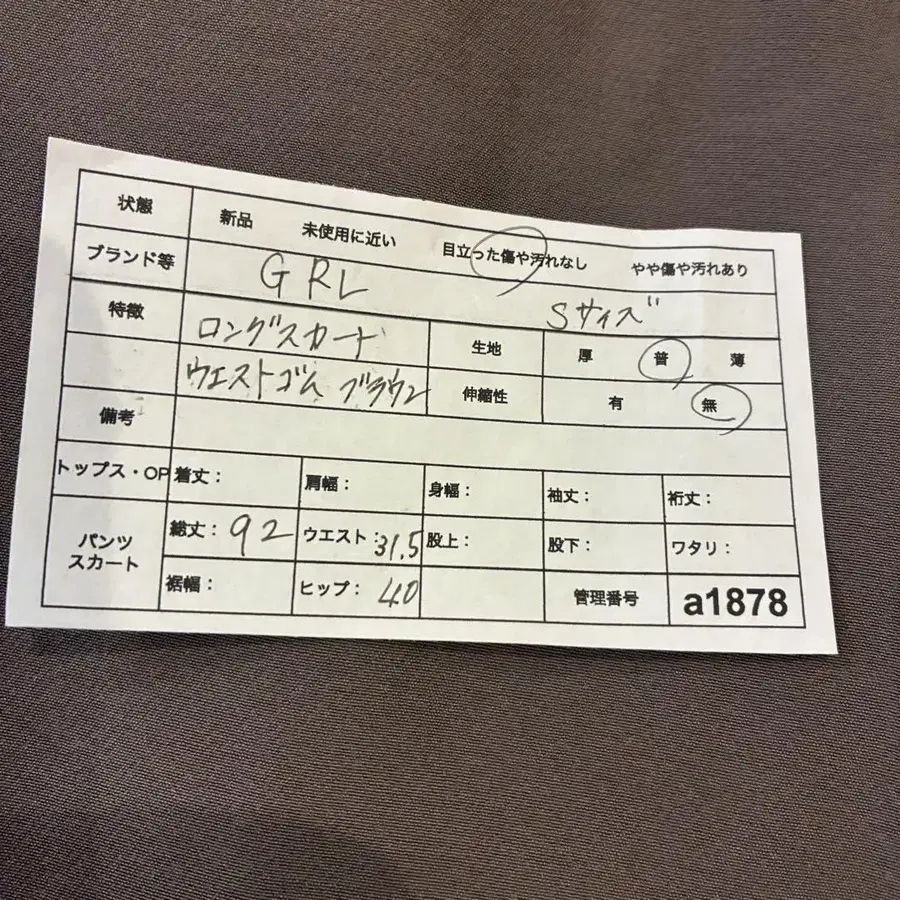 状態 新品 未使用に近い 目立った傷や汚れなし やや傷や汚れあり
ブランド等 GRL Sサイズ
特徴 ロングスカート 生地 厚 普 薄
ウエストゴム ブラウン 伸縮性 有 無
備考
トップス・OP 着丈: 肩幅: 身幅: 袖丈: 裄丈:
パンツ スカート 総丈: 92 ウエスト: 31.5 股上: 股下: ワタリ:
裾幅: ヒップ: 40 管理番号 a1878